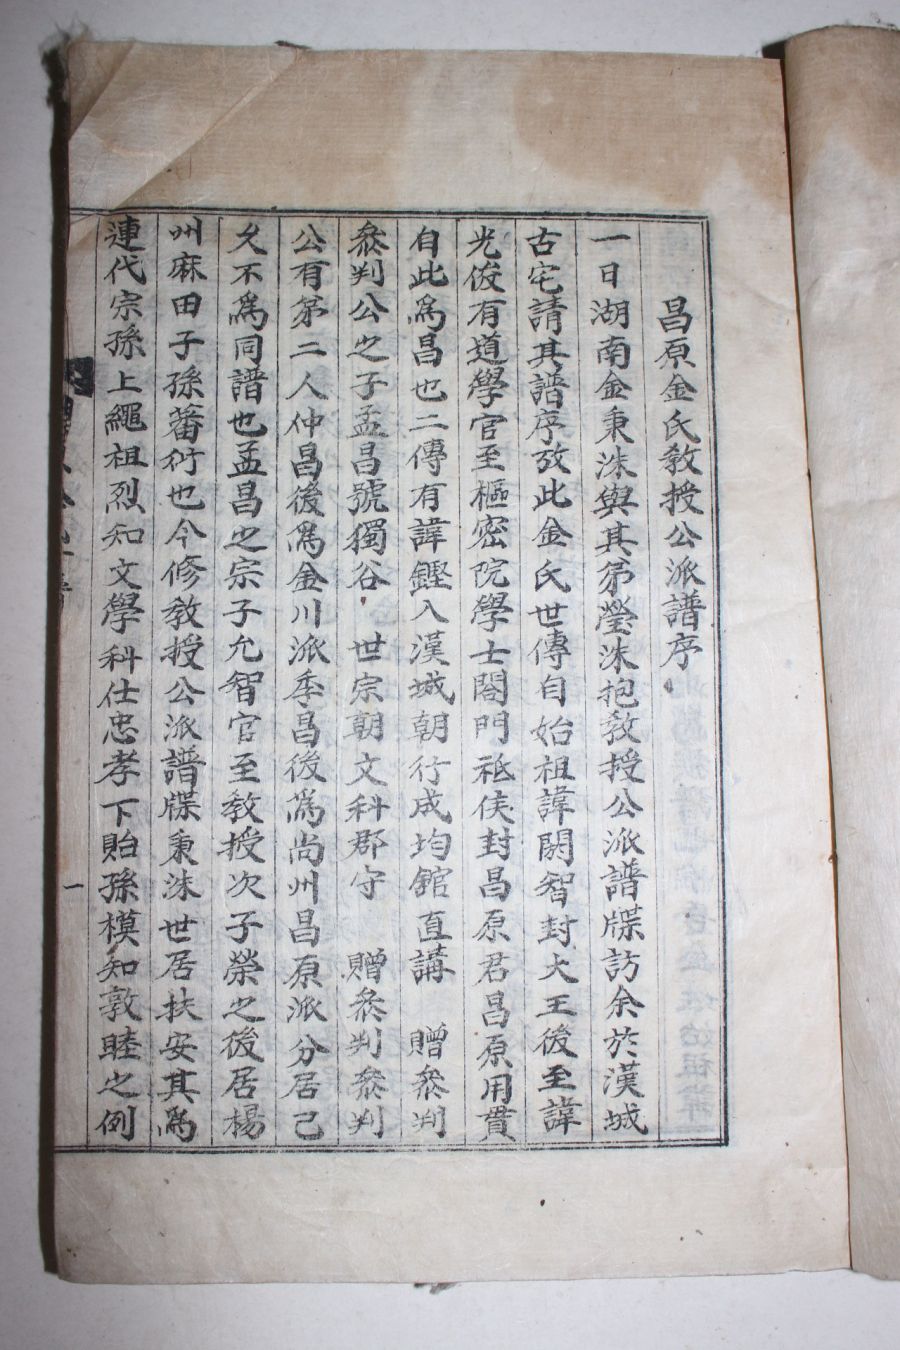 昌原金氏敎授公派譜序
一日湖南金秉洙與其弟瑩洙抱敎授公派譜牒訪余於漢城
古宅請其譜序攷此金氏世傳自始祖諱閼智封大王後至諱
光俊有道學官至樞密院學士閤門祗侯封昌原君昌原用貫
自此爲昌也二傳有諱鏗入漢城朝行成均館直講 贈叅判
叅判公之子孟昌號獨谷 世宗朝文科郡守 贈叅判叅判
公有第二人仲昌後爲金川派季昌後爲尚州昌原派分居己
久不爲同譜也孟昌之宗子允智官至敎授次子榮之後居楊
州麻田子孫蕃衍也今修敎授公派譜牒秉洙世居扶安其爲
連代宗孫上繩祖烈知文學科仕忠孝下貽孫模知敦睦之例
一